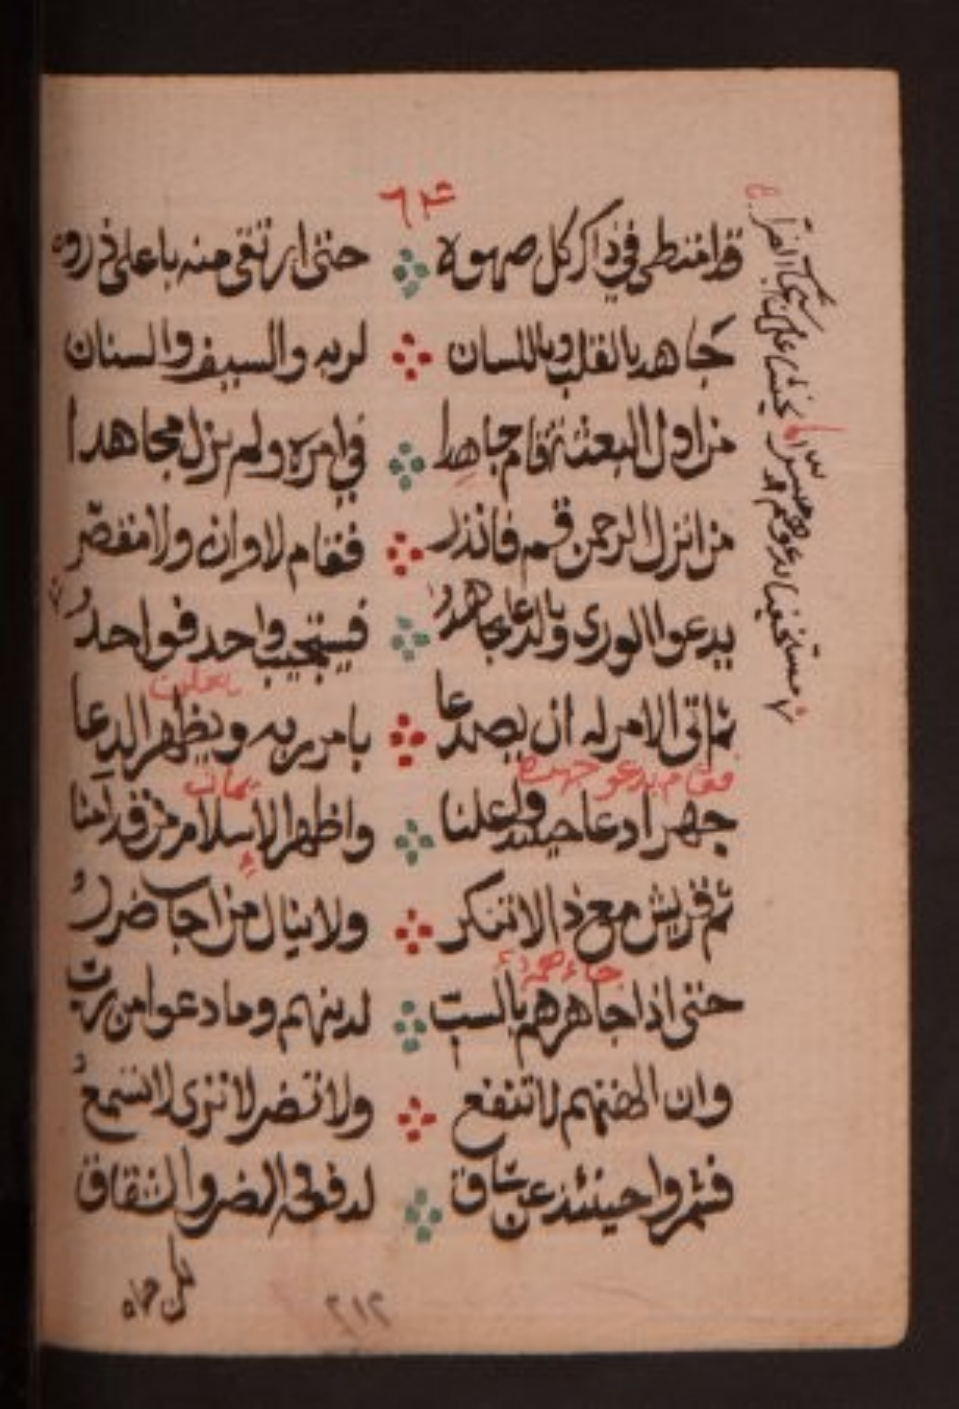 ٦٤
قد امتطى في ذاك كل صهوة حتى ارتقى منه باعلى ذروة
جاهد بالقلب وباللسان لربه والسيف والسنان
من اول البعثة قام جاهدا في امره ولم يزل مجاهدا
من انزل الرحمن قم فانذر فقام لا وان ولا مقصر
يدعوا الورى وبالدعا يجاهد فيستجيب واحد فواحد
ثم اتى الامر له ان يصدعا بامر ربه ويظهر الدعا
فقام يدعو جهرة
جهرا دعا حينئذ واعلنا واظهر الاسلام من قد آمنا
ثم قريش مع ذا لا تنكر ولا ينال من اجاب ضرر
حتى اذا جاهرهم بالسب لدينهم وما دعوا من رب
وان الهتهم لا تنفع ولا تضر لا ترى لا تسمع
فشمروا حينئذ عن ساق لدفعه الضر والشقاق
٢١٢